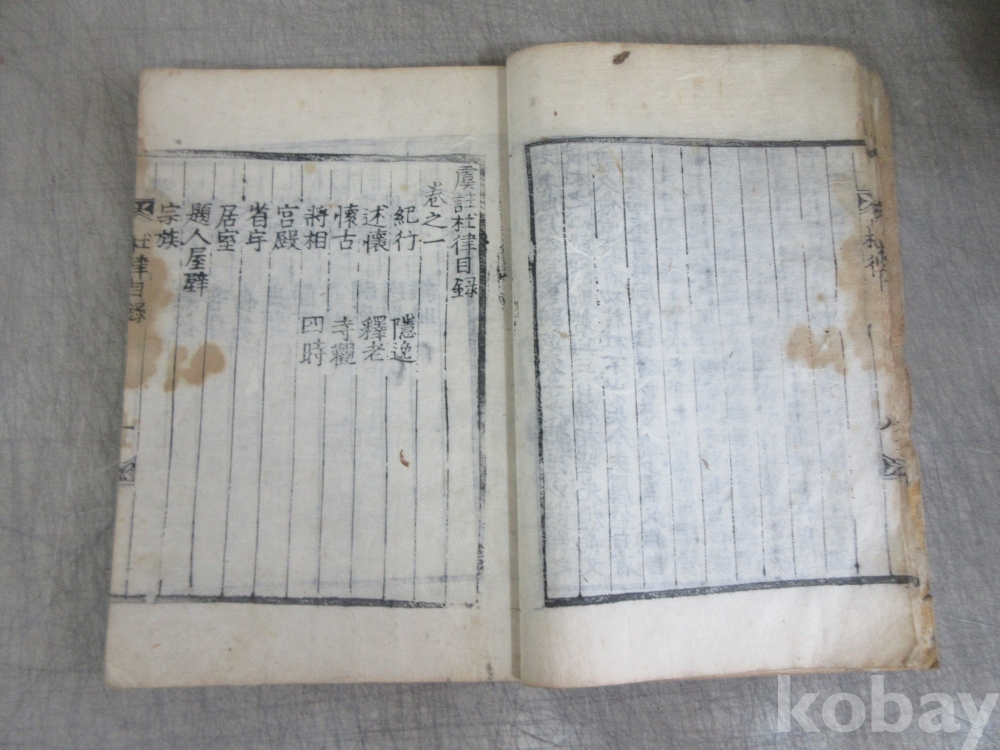 虞註杜律目錄
卷之一
紀行 隱逸
述懷 釋老
懷古 寺觀
將相 四時
宮殿
省宇
居室
題人屋壁
宗族
杜律目錄
一
杜律
kobay